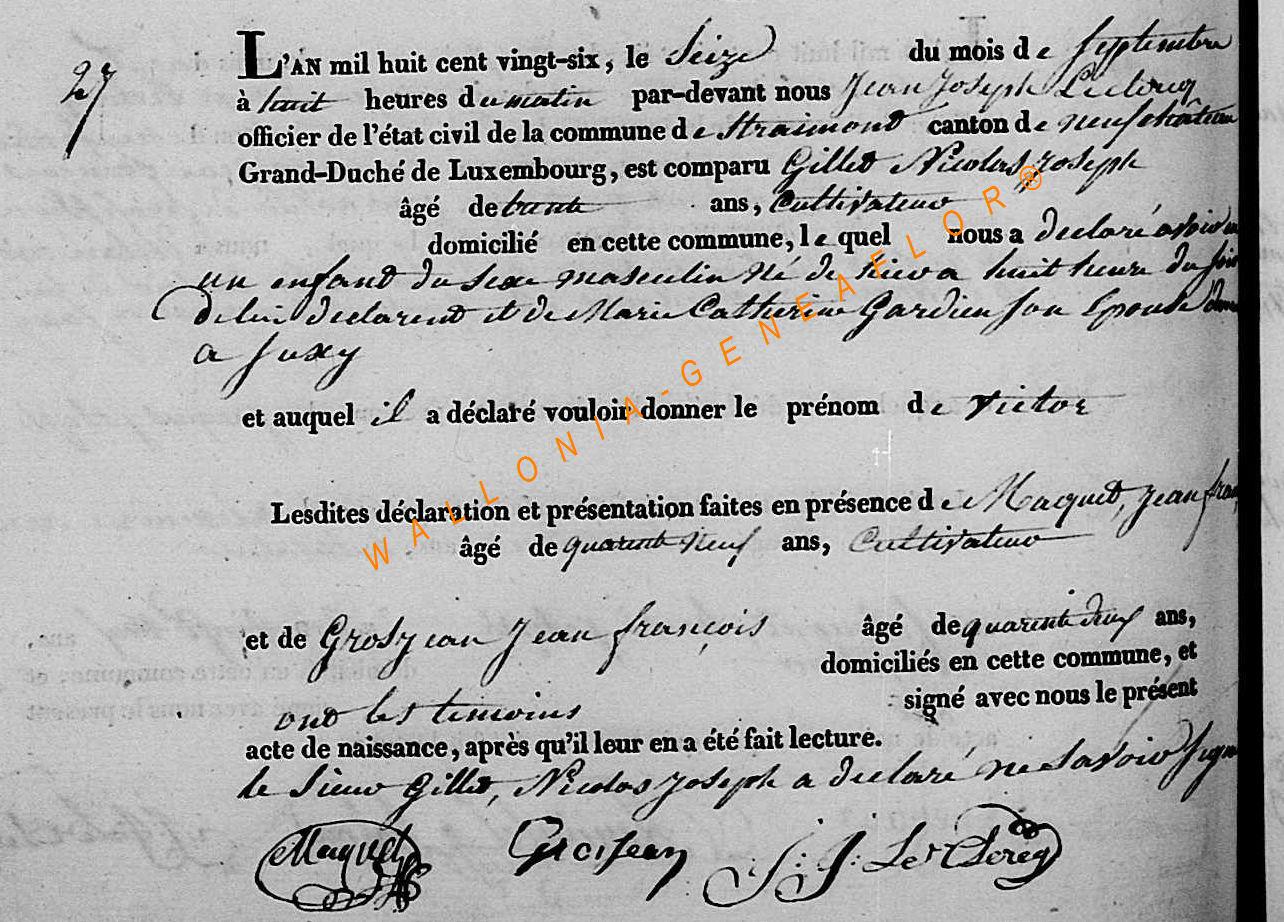 27
L'AN mil huit cent vingt-six, le Seize du mois de septembre
à huit heures du matin par-devant nous Jean Joseph Leclercq
officier de l'état civil de la commune de Straimont canton de neufchâteau
Grand-Duché de Luxembourg, est comparu Gillet Nicolas Joseph
âgé de trente ans, Cultivateur
domicilié en cette commune, le quel nous a déclaré avoir
un enfant du sexe masculin né de hier a huit heure du soir
de lui declarent et de Marie Catherine Gardien son Epouse
a Suxy
et auquel il a déclaré vouloir donner le prénom de Victor
Lesdites déclaration et présentation faites en présence de Maquet, Jean fran
âgé de quarente neuf ans, Cultivateur
et de Grosjean Jean françois âgé de quarente deux ans,
domiciliés en cette commune, et
ont les temoins signé avec nous le présent
acte de naissance, après qu'il leur en a été fait lecture.
le Sieur Gillet, Nicolas Joseph a declaré ne savoir sign
Maquet Grosjean J. J. Le Clercq
WALLONIA-GENEAELOR®